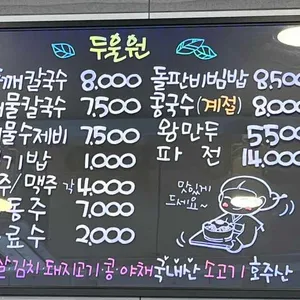 두울원
깨칼국수 8.000
물칼국수 7.500
물수제비 7.500
기밥 1.000
주/맥주 각4.000
동주 7.000
료수 2.000
돌판비빔밥 8.50
콩국수(계절) 8.00
왕만두 5.500
파전 14.000
맛있게
드세요~
쌀김치 돼지고기 콩 야채 국내산 소고기 호주산